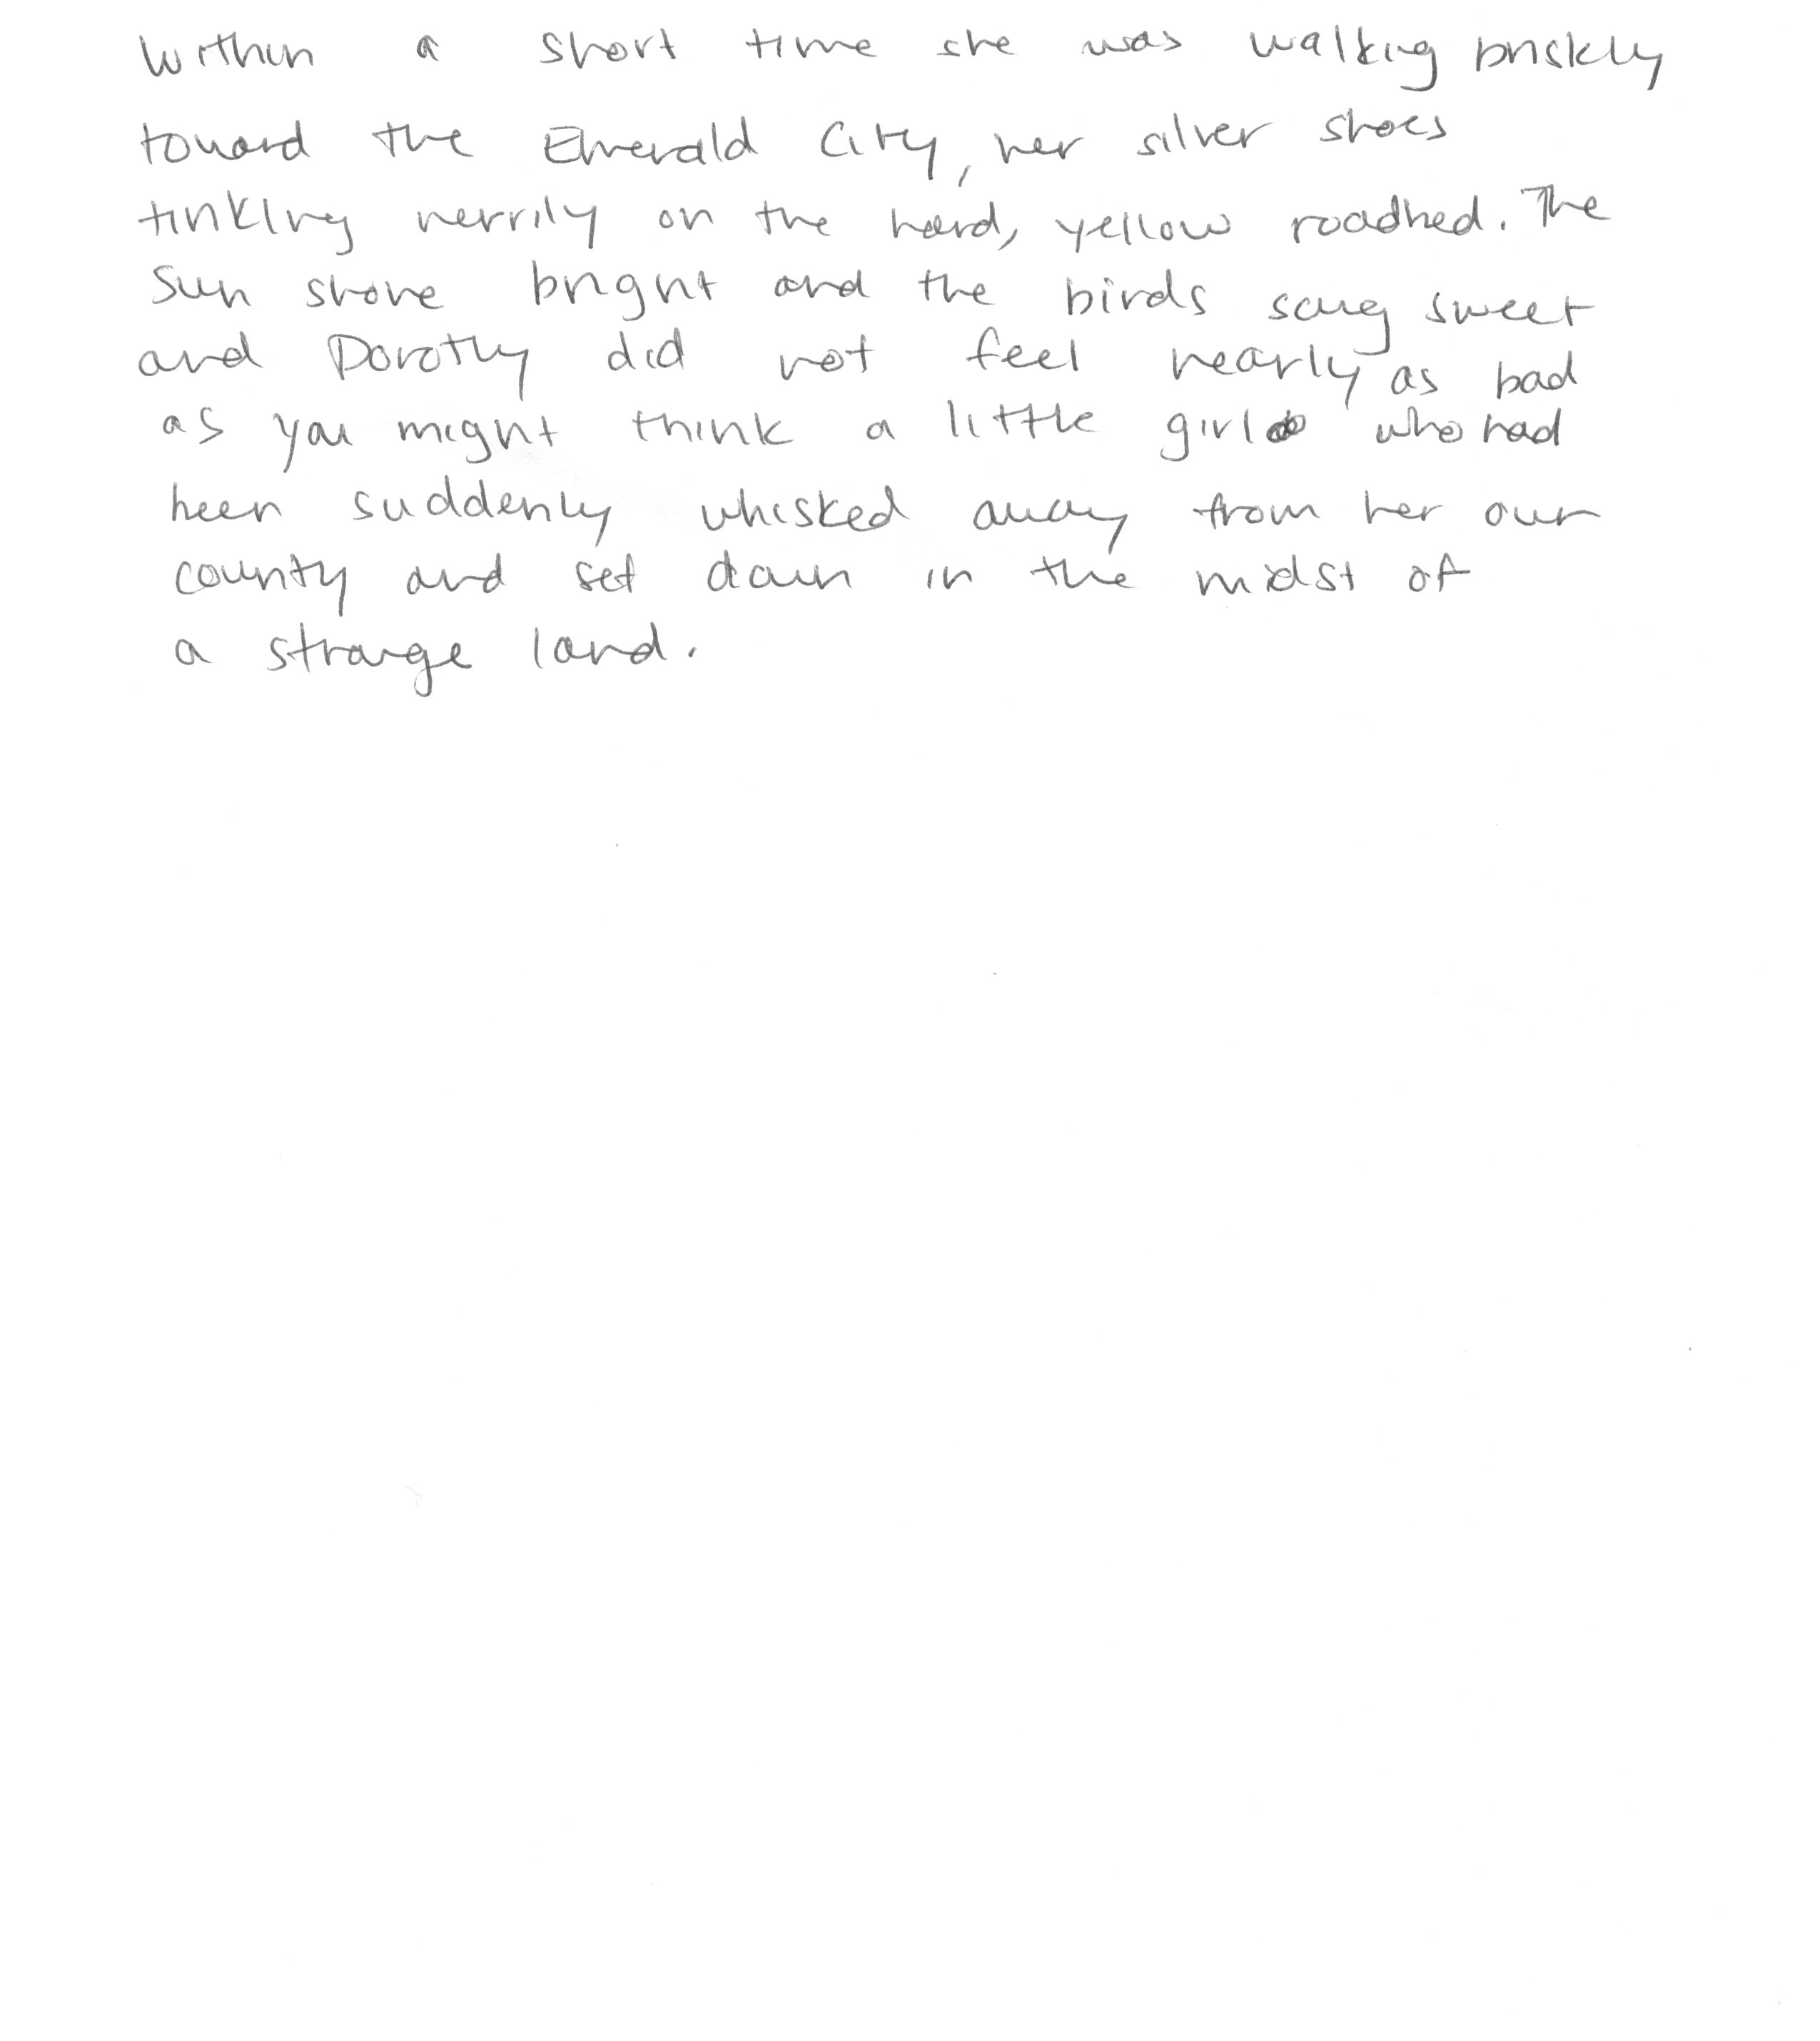 Within a short time she was walking briskly
toward the Emerald City, her silver shoes
tinkling merrily on the hard, yellow roadbed. The
sun shone bright and the birds sang sweet
and Dorothy did not feel nearly as bad
as you might think a little girl who had
been suddenly whisked away from her own
county and set down in the midst of
a strange land.